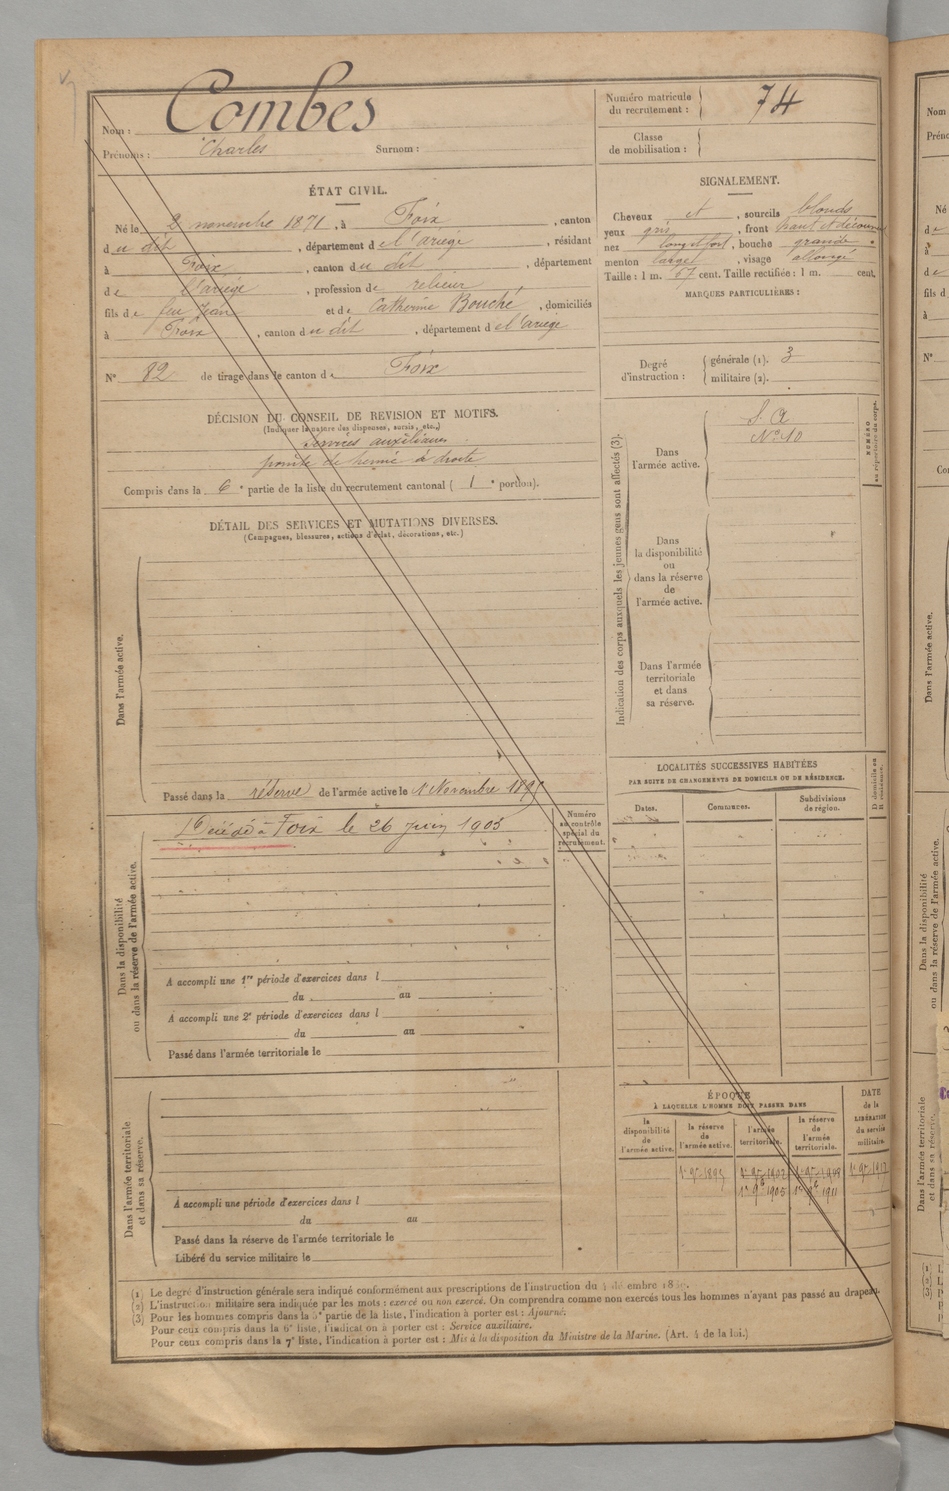 Nom : Combes
Prénoms : Charles Surnom :
Numéro matricule du recrutement : 74
Classe de mobilisation :
ÉTAT CIVIL.
Né le 2 novembre 1871, à Foix, canton
du dit, département de l'ariège, résidant
à Foix, canton du dit, département
de l'ariège, profession de relieur
fils de feu Jean et de Catherine Bouché, domiciliés
à Foix, canton du dit, département de l'ariège
N° 82 de tirage dans le canton de Foix
SIGNALEMENT.
Cheveux et, sourcils blonds
yeux gris, front haut et découvert
nez long et fort, bouche grande
menton large, visage allongé
Taille : 1 m. 67 cent. Taille rectifiée : 1 m. cent.
MARQUES PARTICULIÈRES :
Degré d'instruction : générale (1). 3
militaire (2).
DÉCISION DU CONSEIL DE REVISION ET MOTIFS.
(Indiquer la nature des dispenses, sursis, etc.)
services auxiliaires
pointe de hernie à droite
Compris dans la 6e partie de la liste du recrutement cantonal (1e portion).
DÉTAIL DES SERVICES ET MUTATIONS DIVERSES.
(Campagnes, blessures, actions d'éclat, décorations, etc.)
Dans l'armée active.
Passé dans la réserve de l'armée active le 1 Novembre
Numéro au contrôle spécial du recrutement.
Dans la disponibilité ou dans la réserve de l'armée active.
Décédé à Foix le 26 juin 1903
A accompli une 1re période d'exercices dans l
du au
A accompli une 2e période d'exercices dans l
du au
Passé dans l'armée territoriale le
Dans l'armée territoriale et dans sa réserve.
A accompli une période d'exercices dans l
du au
Passé dans la réserve de l'armée territoriale le
Libéré du service militaire le
Indication des corps auxquels les jeunes gens sont affectés (3).
Dans l'armée active.
S. A
N° 10
NUMÉRO au répertoire du corps.
Dans la disponibilité ou dans la réserve de l'armée active.
Dans l'armée territoriale et dans sa réserve.
LOCALITÉS SUCCESSIVES HABITÉES
PAR SUITE DE CHANGEMENTS DE DOMICILE OU DE RÉSIDENCE.
Dates. Communes. Subdivisions de région.
ÉPOQUE
À LAQUELLE L'HOMME DOIT PASSER DANS
la disponibilité de l'armée active.
la réserve de l'armée active.
l'armée territoriale.
la réserve de l'armée territoriale.
DATE de la LIBÉRATION du service militaire.
(1) Le degré d'instruction générale sera indiqué conformément aux prescriptions de l'instruction du
(2) L'instruction militaire sera indiquée par les mots : exercé ou non exercé. On comprendra comme non exercés tous les hommes n'ayant pas passé au drapeau.
(3) Pour les hommes compris dans la 5e partie de la liste, l'indication à porter est : Ajourné.
Pour ceux compris dans la 6e liste, l'indication à porter est : Service auxiliaire.
Pour ceux compris dans la 7e liste, l'indication à porter est : Mis à la disposition du Ministre de la Marine. (Art. 4 de la loi.)